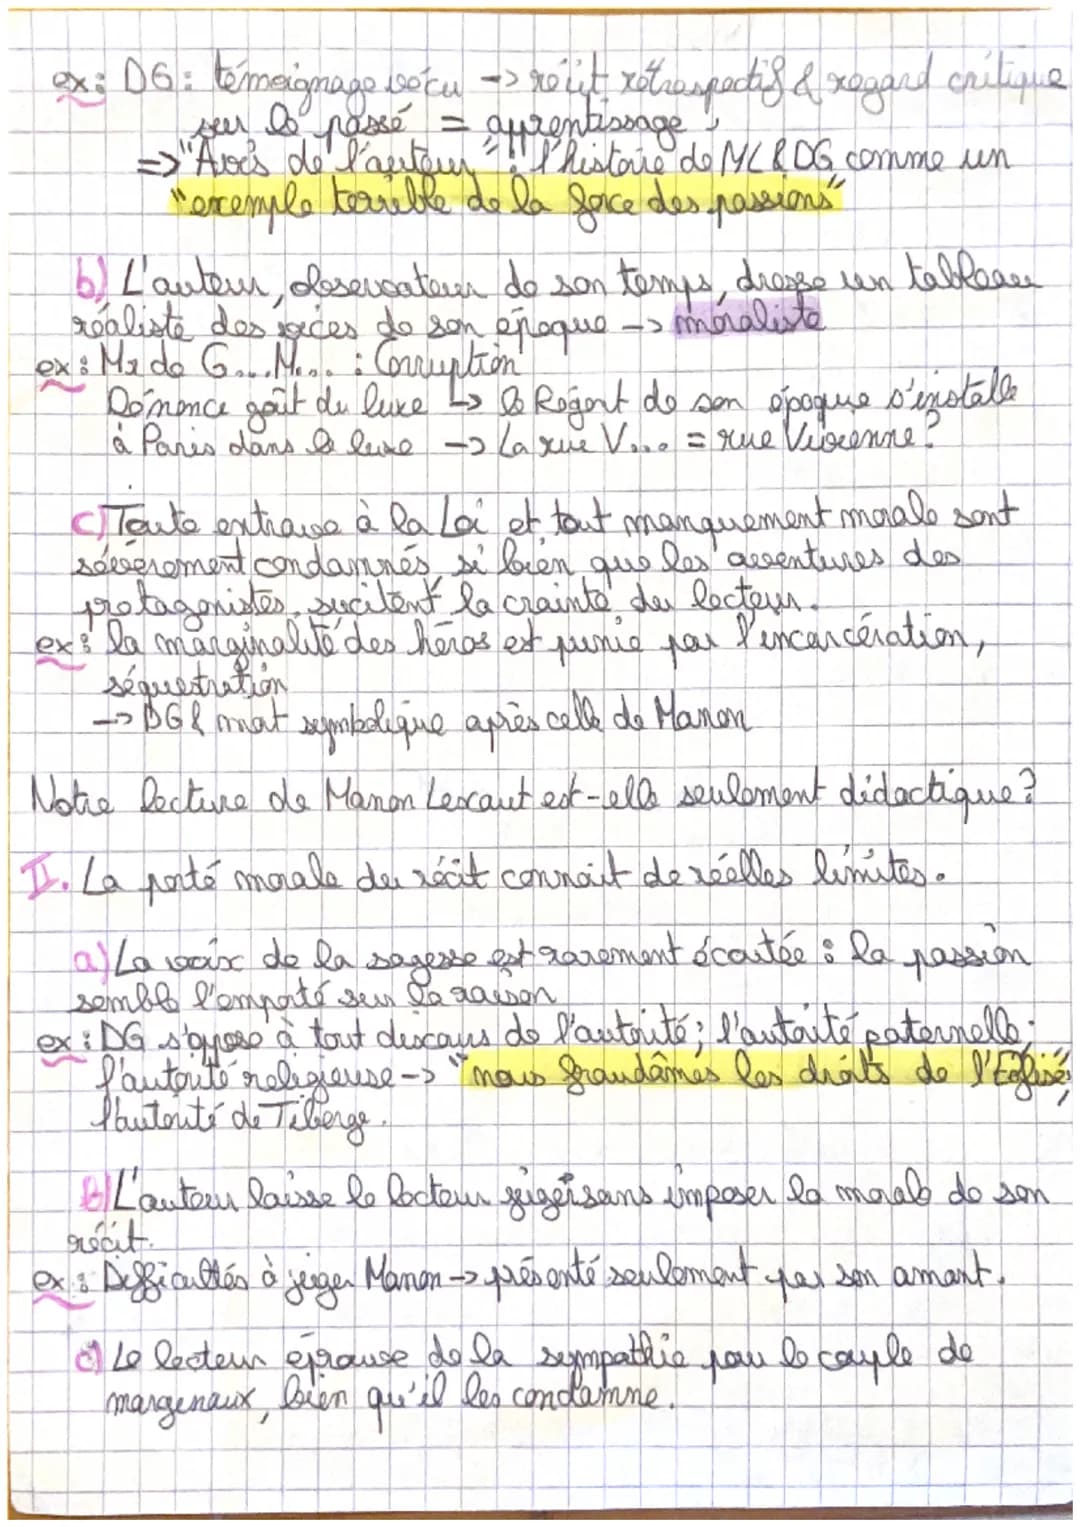 ex: DG: témoignage vécu -> récit rétrospectif & regard critique
sur le passé = apprentissage
=> "Avis de l'auteur": l'histoire de ML & DG comme un
"exemple terrible de la force des passions"
b) L'auteur, observateur de son temps, dresse un tableau
réaliste des vices de son époque -> moraliste
ex: Mr de G...M... : Corruption
Dénonce goût du luxe ↳ le Régent de son époque s'installe
à Paris dans le luxe -> La rue V... = rue Vivienne?
c) Toute entrave à la Loi et tout manquement morale sont
sévèrement condamnés si bien que les aventures des
protagonistes sucitent la crainte du lecteur.
ex: la marginalité des héros est punie par l'incarcération,
séquestration
-> DG & mort symbolique après celle de Manon
Notre lecture de Manon Lescaut est-elle seulement didactique?
II. La porté morale du récit connait de réelles limites.
a) La voix de la sagesse est rarement écoutée : la passion
semble l'emporté sur la raison
ex: DG s'opose à tout discours de l'autorité; l'autorité paternelle;
l'autorité religieuse -> "nous fraudâmes les droits de l'Eglise",
l'autorité de Tiberge.
b) L'auteur laisse le lecteur juger sans imposer la morale de son
récit.
ex: Difficultés à juger Manon -> présenté seulement par son amant.
c) Le lecteur éprouve de la sympathie pour le couple de
margenaux, bien qu'il les condamne.